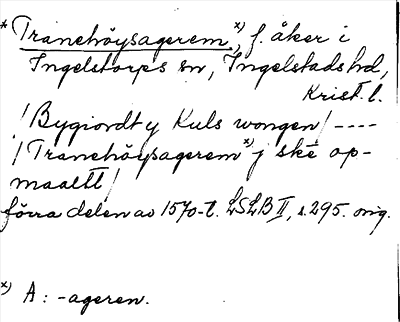 * Tranehöysagerem x), f. åker i
Ingelstorps sn, Ingelstads hd,
Krist. l.
/Bygiordt y Kuls wongen/ ----
/Tranehöysagerem x) j skē op-
maaltt/
förra delen av 1570-t. LSLB II, s. 295. orig.
x) A: -ageren.